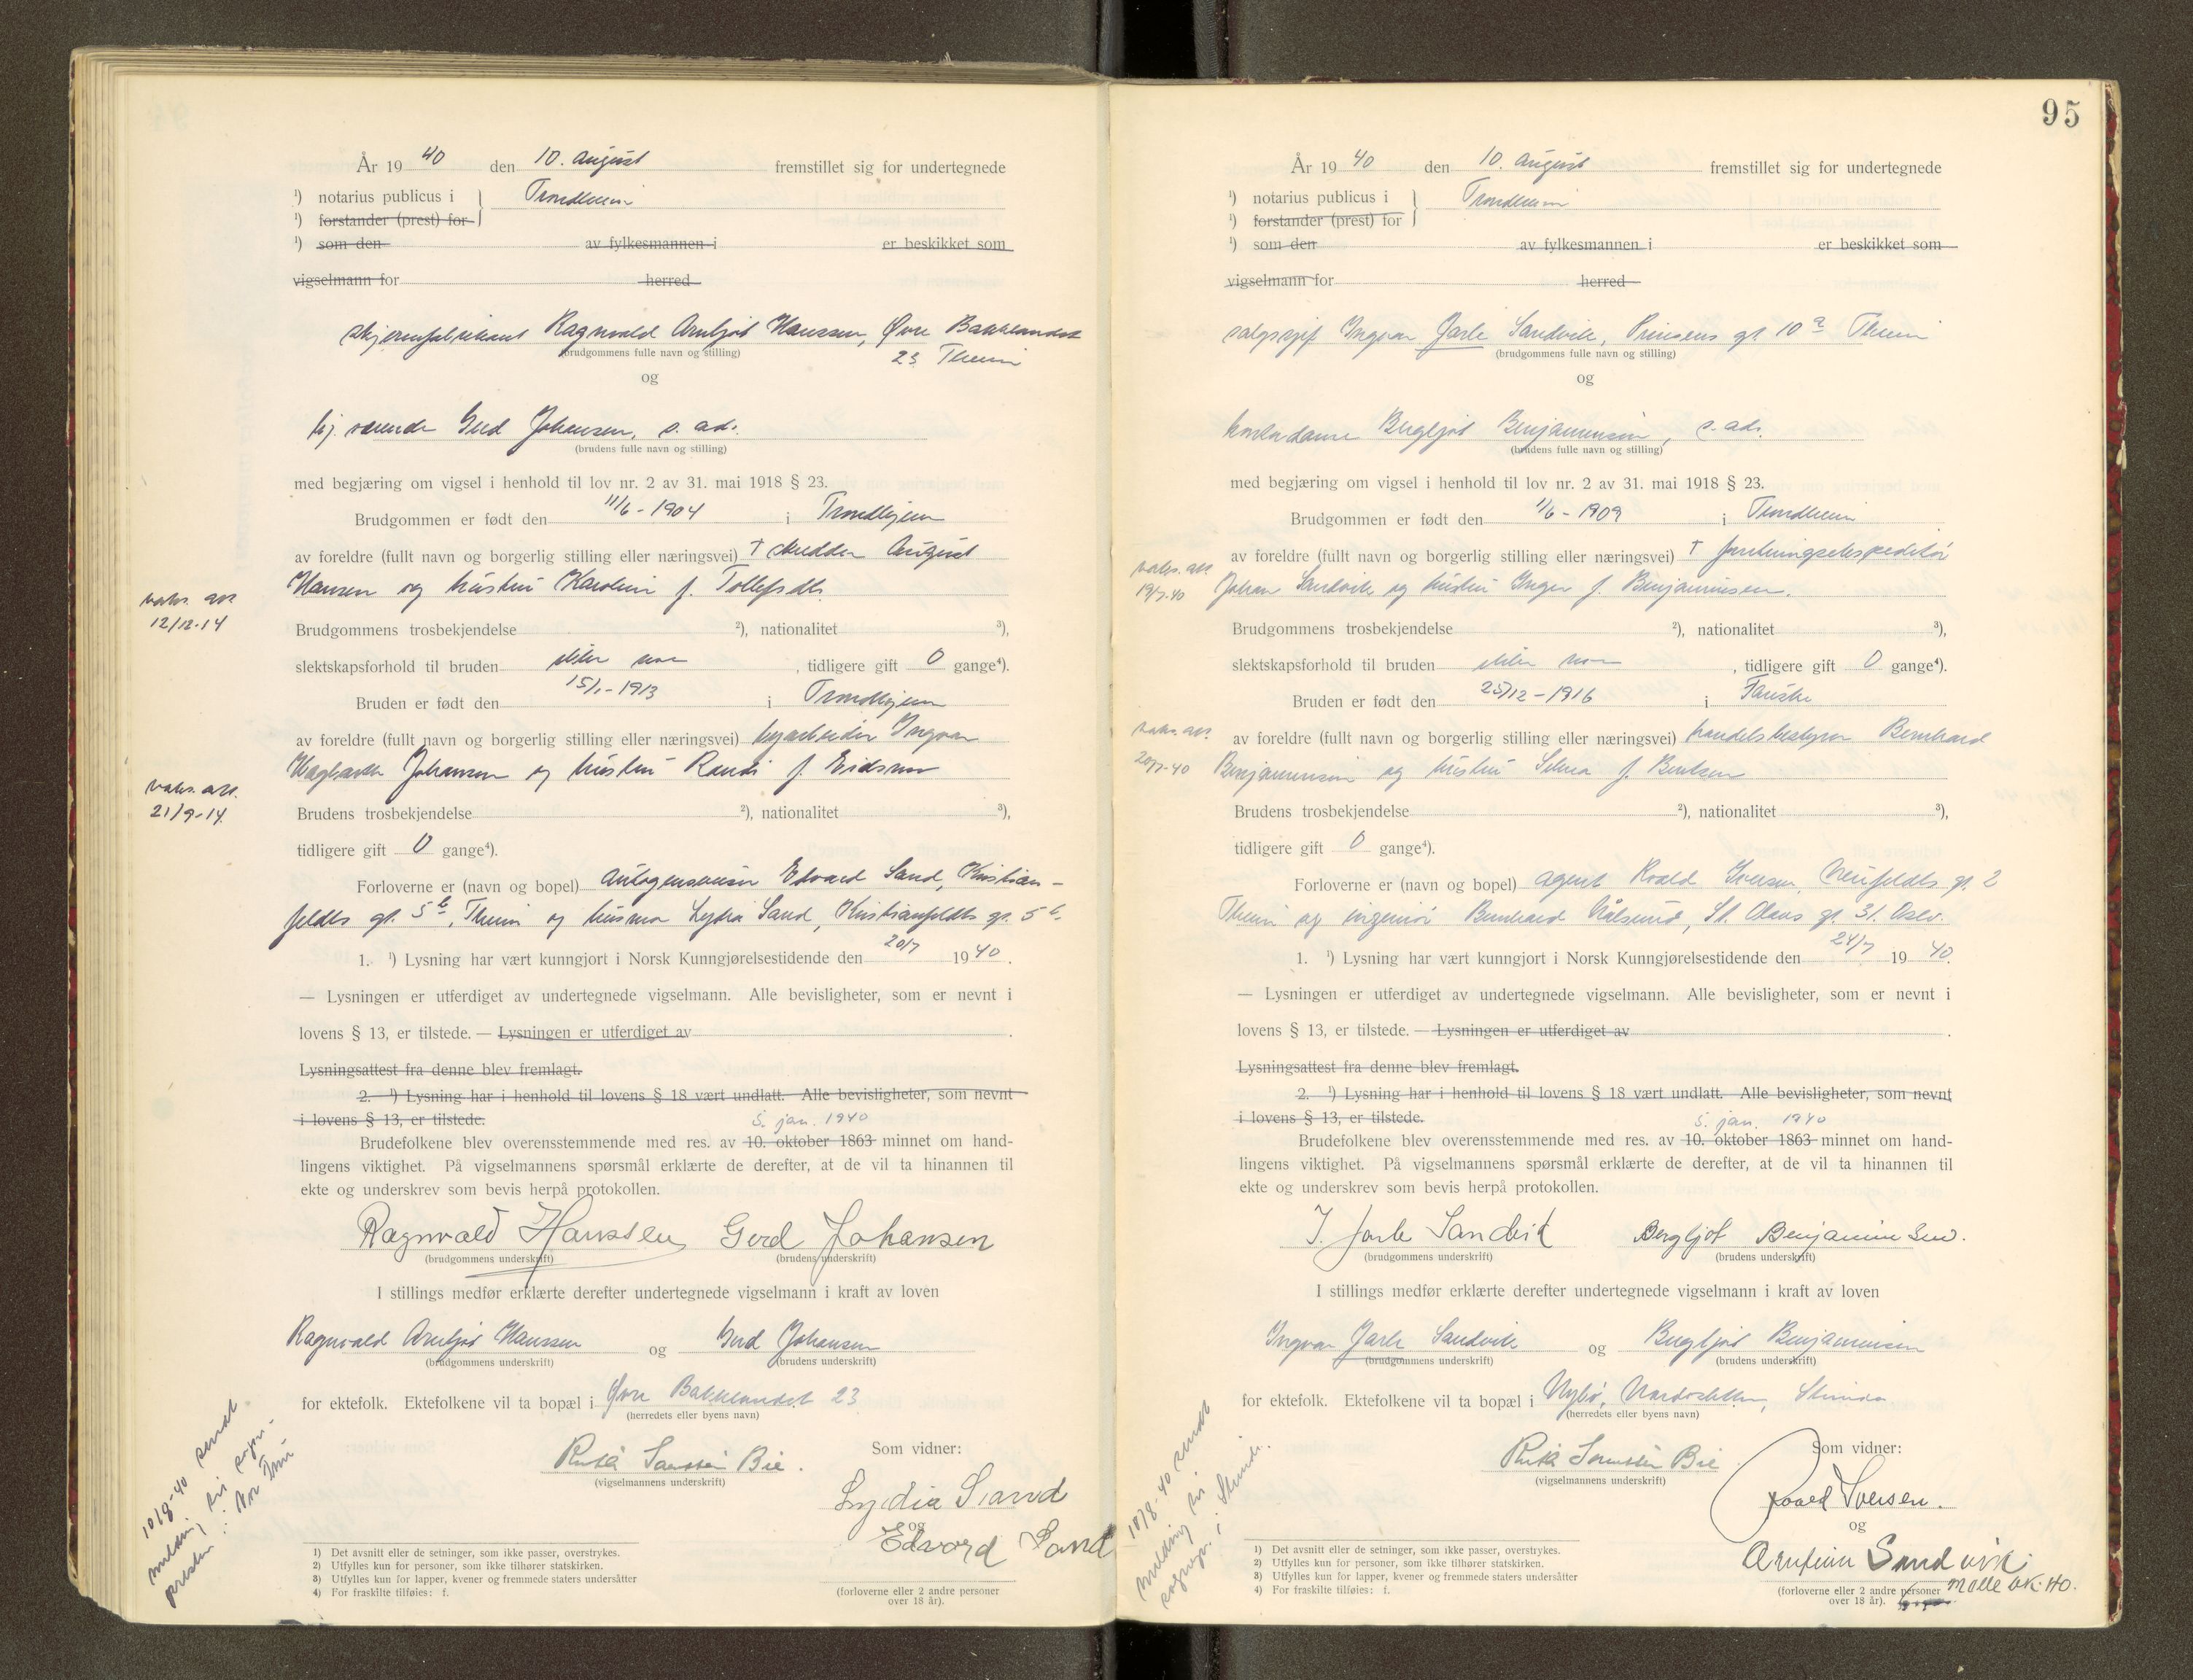 År 19 40 den 10. august fremstillet sig for undertegnede
¹) notarius publicus i } Trondheim
¹) forstander (prest) for
¹) som den av fylkesmannen i er beskikket som
vigselmann for herred
skjermfabrikant Ragnvald Arnljot Hanssen, Øvre Bakklandet
(brudgommens fulle navn og stilling)
23 Theim
og
hj. værende Gerd Johansen, s. ad.
(brudens fulle navn og stilling)
med begjæring om vigsel i henhold til lov nr. 2 av 31. mai 1918 § 23.
Brudgommen er født den 11/6 - 1904 i Trondhjem
av foreldre (fullt navn og borgerlig stilling eller næringsvei) † skredder August
Hansen og hustru Karoline f. Tollefsdtr.
vaks. att.
12/12-14
Brudgommens trosbekjendelse ²), nationalitet ³),
slektskapsforhold til bruden eller noe, tidligere gift 0 gange⁴).
Bruden er født den 15/1 - 1913 i Trondhjem
av foreldre (fullt navn og borgerlig stilling eller næringsvei) Ingvar
Johansen og hustru Randi f. Eidsmo
vaks. att.
21/9-14.
Brudens trosbekjendelse ²), nationalitet ³),
tidligere gift 0 gange⁴).
Forloverne er (navn og bopel) Edvard Sand, Kristian-
feldts gt. 5b, Theim og husmor Lydia Sand, Kristianfeldts gt. 5b.
1. ¹) Lysning har vært kunngjort i Norsk Kunngjørelsestidende den 20/7 1940.
— Lysningen er utferdiget av undertegnede vigselmann. Alle bevisligheter, som er nevnt i
lovens § 13, er tilstede. — Lysningen er utferdiget av .
Lysningsattest fra denne blev fremlagt.
2. ¹) Lysning har i henhold til lovens § 18 vært undlatt. Alle bevisligheter, som nevnt
i lovens § 13, er tilstede. 5. jan. 1940
Brudefolkene blev overensstemmende med res. av 10. oktober 1863 minnet om hand-
lingens viktighet. På vigselmannens spørsmål erklærte de derefter, at de vil ta hinannen til
ekte og underskrev som bevis herpå protokollen.
Ragnvald Hanssen Gerd Johansen
(brudgommens underskrift) (brudens underskrift)
I stillings medfør erklærte derefter undertegnede vigselmann i kraft av loven
Ragnvald Arnljot Hanssen og Gerd Johansen
(brudgommens underskrift) (brudens underskrift)
for ektefolk. Ektefolkene vil ta bopæl i Øvre Bakklandet 23
(herredets eller byens navn)
Bie.
(vigselmannens underskrift)
Som vidner:
Lydia Sand
og
Edvard Sand
(forloverne eller 2 andre personer
over 18 år).
10/8-40 sendt
melding til sogne-
presten i
1) Det avsnitt eller de setninger, som ikke passer, overstrykes.
2) Utfylles kun for personer, som ikke tilhører statskirken.
3) Utfylles kun for lapper, kvener og fremmede staters undersåtter
4) For fraskilte tilføies: f.
95
År 19 40 den 10. august fremstillet sig for undertegnede
¹) notarius publicus i } Trondheim
¹) forstander (prest) for
¹) som den av fylkesmannen i er beskikket som
vigselmann for herred
salgssjef Ingvar Jarle Sandvik, Prinsens gt 10a Theim
(brudgommens fulle navn og stilling)
og
kontordame Bergljot Benjaminsen, s. ad.
(brudens fulle navn og stilling)
med begjæring om vigsel i henhold til lov nr. 2 av 31. mai 1918 § 23.
Brudgommen er født den 1/6 - 1909 i Trondheim
av foreldre (fullt navn og borgerlig stilling eller næringsvei) † forretningsekspeditør
Johan Sandvik og hustru Inger f. Benjaminsen.
vaks. att.
19/7-40
Brudgommens trosbekjendelse ²), nationalitet ³),
slektskapsforhold til bruden eller noe, tidligere gift 0 gange⁴).
Bruden er født den 25/12 - 1916 i Fauske
av foreldre (fullt navn og borgerlig stilling eller næringsvei) handelsbestyrer Bernhard
Benjaminsen og hustru Selma f. Bentsen
vaks. att.
20/7-40
Brudens trosbekjendelse ²), nationalitet ³),
tidligere gift 0 gange⁴).
Forloverne er (navn og bopel) agent Roald Iversen, Neufeldts gt. 2
Theim og ingeniør Bernhard Ålsund, St. Olavs gt. 31. Oslo.
1. ¹) Lysning har vært kunngjort i Norsk Kunngjørelsestidende den 24/7 19 40.
— Lysningen er utferdiget av undertegnede vigselmann. Alle bevisligheter, som er nevnt i
lovens § 13, er tilstede. — Lysningen er utferdiget av .
Lysningsattest fra denne blev fremlagt.
2. ¹) Lysning har i henhold til lovens § 18 vært undlatt. Alle bevisligheter, som nevnt
i lovens § 13, er tilstede. 5. jan. 1940
Brudefolkene blev overensstemmende med res. av 10. oktober 1863 minnet om hand-
lingens viktighet. På vigselmannens spørsmål erklærte de derefter, at de vil ta hinannen til
ekte og underskrev som bevis herpå protokollen.
I. Jarle Sandvik Bergljot Benjaminsen.
(brudgommens underskrift) (brudens underskrift)
I stillings medfør erklærte derefter undertegnede vigselmann i kraft av loven
Ingvar Jarle Sandvik og Bergljot Benjaminsen
(brudgommens underskrift) (brudens underskrift)
for ektefolk. Ektefolkene vil ta bopæl i Nardosletten, Strinda
(herredets eller byens navn)
Bie
(vigselmannens underskrift)
Som vidner:
Roald Iversen.
og
Arnfinn Sandvik.
(forloverne eller 2 andre personer
over 18 år).
10/8-40 sendt
melding til
sognepr. i Strinda.
1) Det avsnitt eller de setninger, som ikke passer, overstrykes.
2) Utfylles kun for personer, som ikke tilhører statskirken.
3) Utfylles kun for lapper, kvener og fremmede staters undersåtter
4) For fraskilte tilføies: f.